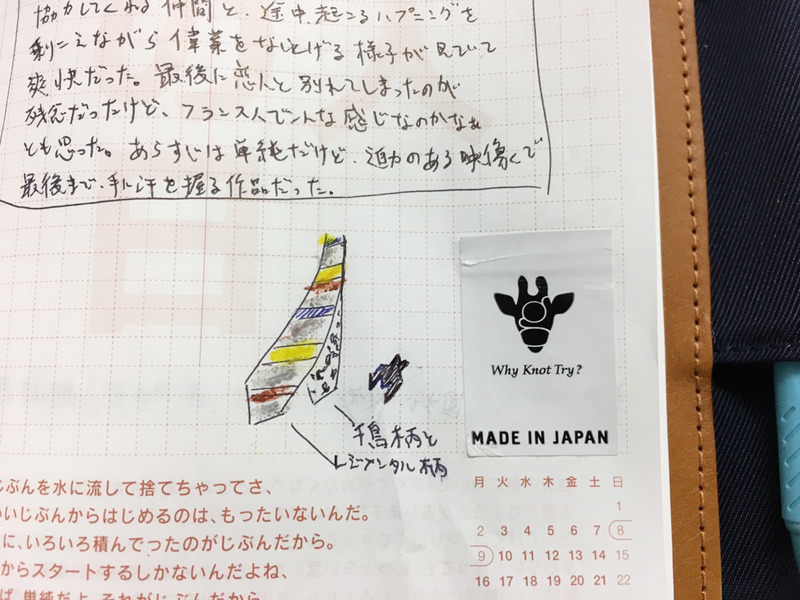 協力してくれる仲間と、途中、起こるハプニングを
乗りこえながら偉業をなしとげる様子が見てて
爽快だった。最後に恋人と別れてしまったのが
残念だったけど、フランス人てこんな感じなのかなぁ
とも思った。あらすじは単純だけど、迫力のある映像で
最後まで、手に汗を握る作品だった。
千鳥柄と
レジメンタル柄
Why Knot Try?
MADE IN JAPAN
じぶんを水に流して捨てちゃってさ、
いいじぶんからはじめるのは、もったいないんだ。
に、いろいろ積んでったのがじぶんだから。
からスタートするしかないんだよね、
ば、単純だよ、それがじぶんだから
月 火 水 木 金 土 日
1
2 3 4 5 6 7 8
9 10 11 12 13 14 15
16 17 18 19 20 21 22